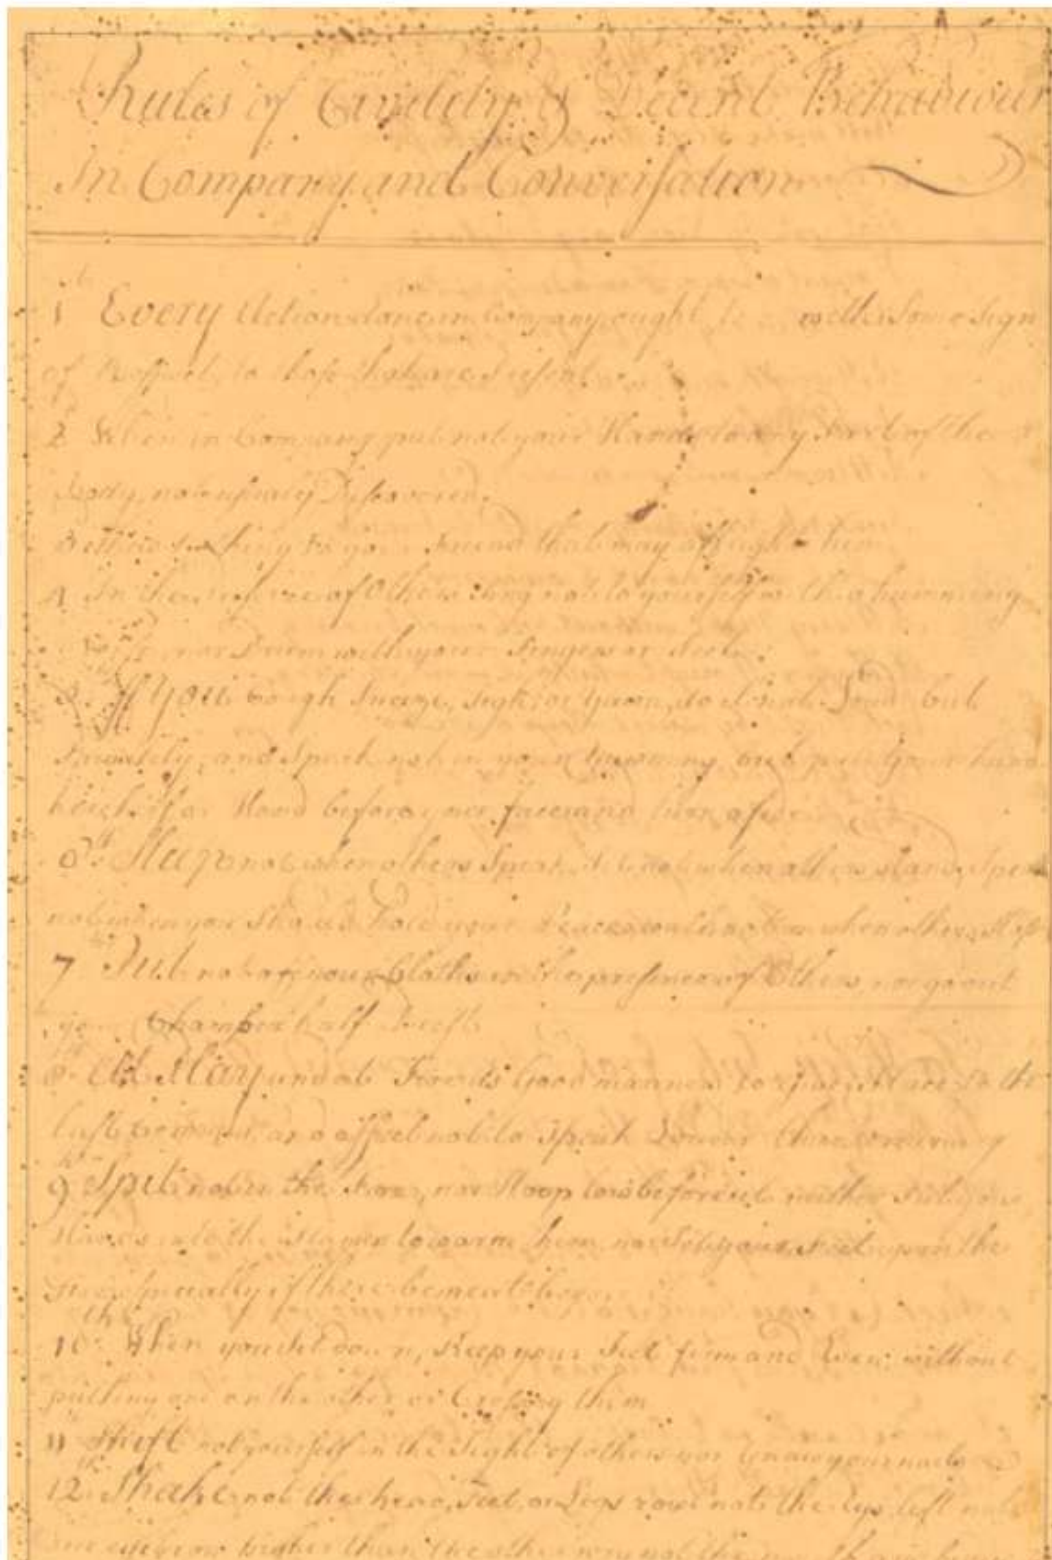 Rules of Civility & Decent Behaviour
In Company and Conversation
1st Every Action done in Company ought to with Some Sign
of Respect, to those that are Present.
2 When in Company, put not your Hands to any Part of the
Body, not usualy Discovered.
3 Shew Nothing to your Freind that may affright him
4 In the Presence of Others Sing not to yourself with a humming
Noise, nor Drum with your Fingers or Feet.
5 If You Cough, Sneeze, Sigh, or Yawn, do it not Loud but
Privately; and Speak not in your Yawning, but put Your hand
or Hand before your face and turn aside
6th Sleep not when others Speak, Sit not when others stand, Speak
not when you Should hold your Peace, walk not on when others Stop
7th Put not off your Cloths in the presence of Others, nor go out
your Chamber half Drest
8th At Play and at Fire its Good manners to to the
last Commer, and affect not to Speak Louder than ordinary
9th Spit not in the Fire, nor Stoop low before it neither Put your
Hands into the Flames to warm them, nor Set your Feet upon the
Fire especially if there be meat before it
10th When you Sit down, Keep your Feet firm and Even, without
putting one on the other or Crossing them
11th Shift not yourself in the Sight of others nor Gnaw your nails
12th Shake not the head, Feet, or Legs rowl not the Eys lift not
one eyebrow higher than the other wry not the mouth